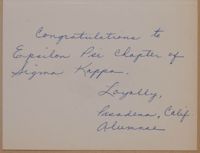 Congratulations to
Epsilon Psi Chapter of
Sigma Kappa.
Loyally,
Pasadena, Calif
Alumnae